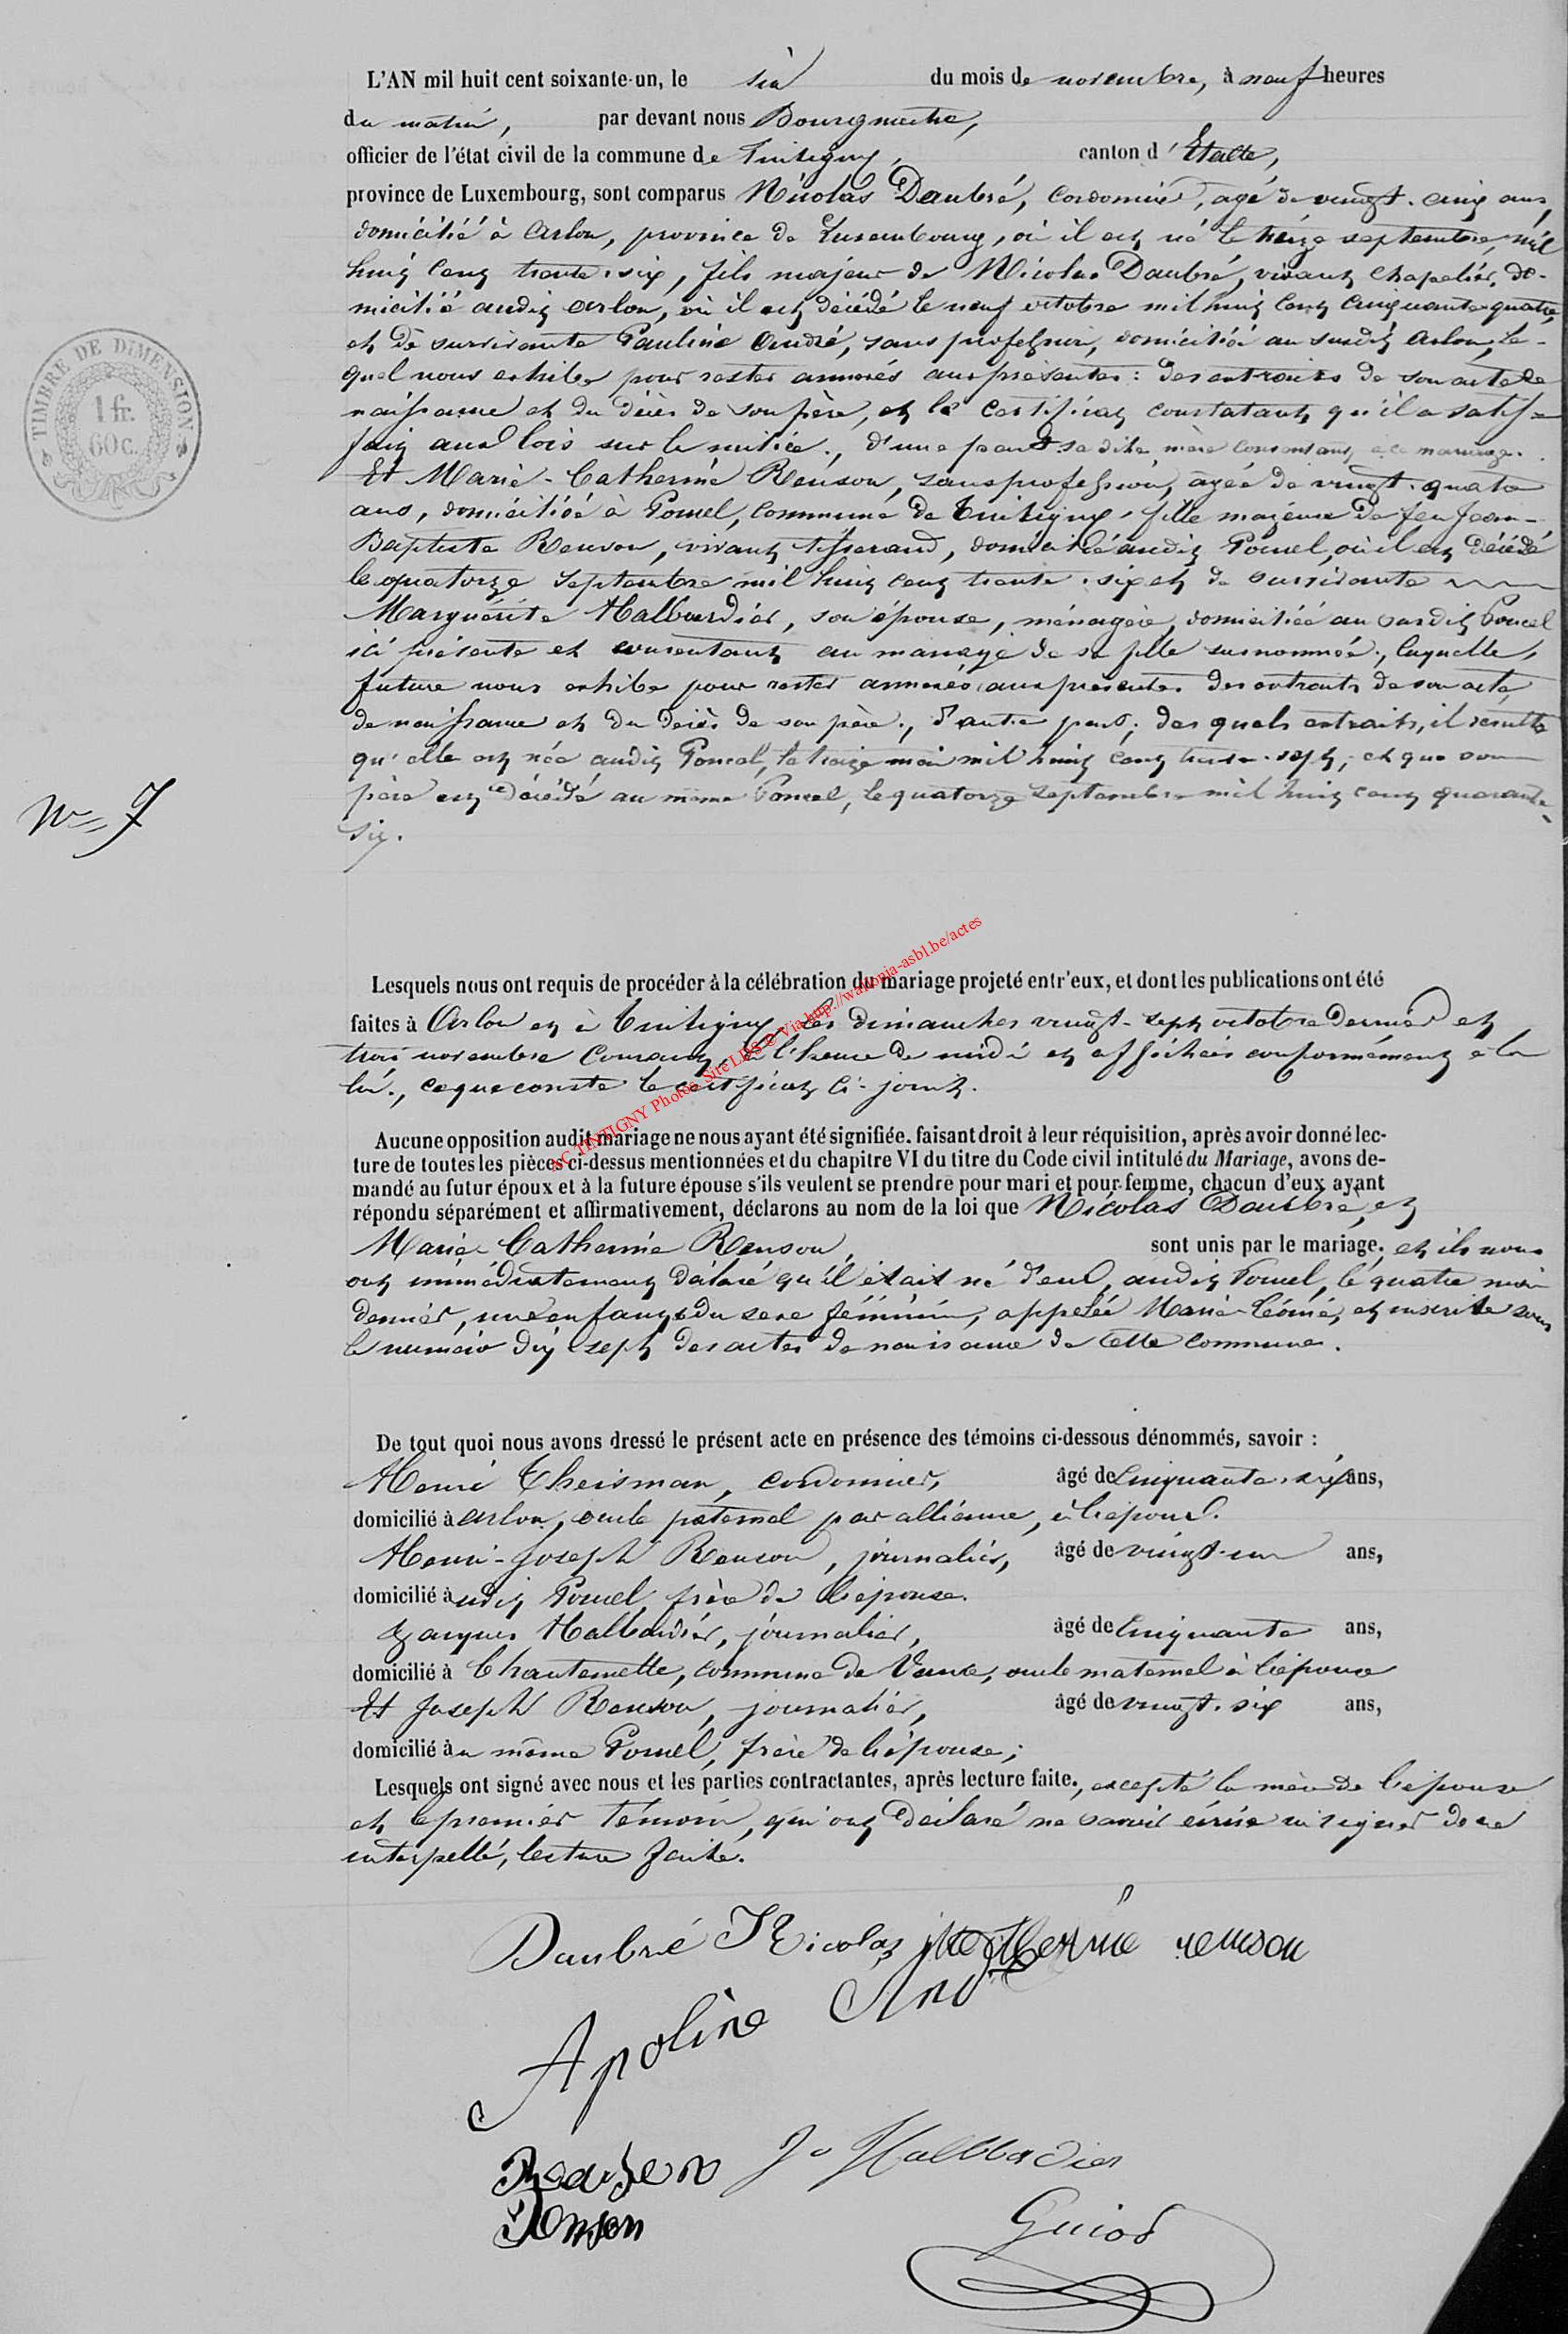 L'AN mil huit cent soixante-un, le six du mois de novembre, à neuf heures
du matin, par devant nous Bourgmestre,
officier de l'état civil de la commune de Tintigny, canton d'Etalle,
province de Luxembourg, sont comparus Nicolas Daubré, cordonnier, agé de vingt-cinq ans,
domicilié à Arlon, province de Luxembourg, où il est né le treize septembre mil
huit cent trente-six, fils majeur de Nicolas Daubré, vivant chapelier, do-
micilié audit Arlon, où il est décédé le neuf octobre mil huit cent cinquante quatre
et de survivante Pauline André, sans profession, domiciliée au susdit Arlon, le-
quel nous exhibe pour rester annexés aux présentes : des extraits de son acte de
naissance et du décès de son père, et le certificat constatant qu'il a satis-
fait aux lois sur la milice., d'une part sa dite mère consentant à ce mariage.
Et Marie-Catherine Renson, sans profession, agée de vingt-quatre
ans, domiciliée à Poncel, commune de Tintigny, fille majeure de feu Jean-
Baptiste Renson, vivant tisserand, domicilié audit Poncel, où il est décédé
le quatorze septembre mil huit cent trente-six et de survivante
Marguérite Halbardier, son épouse, ménagère, domiciliée au susdit Poncel
ici présente et consentant au mariage de sa fille susnommée, laquelle
future nous exhibe pour rester annexés aux présentes des extraits de son acte
de naissance et du décès de son père, d'autre part; des quels extraits, il résulte
qu'elle est née audit Poncel, le treize mai mil huit cent trente-sept; et que son
père est décédé au même Poncel, le quatorze septembre mil huit cent quarante
six.
N° 7
TIMBRE DE DIMENSION
1 fr.
60 c.
Lesquels nous ont requis de procéder à la célébration du mariage projeté entr'eux, et dont les publications ont été
faites à Arlon et à Tintigny, les dimanches vingt-sept octobre dernier et
trois novembre courant, à l'heure de midi et affichées conformément à la
loi., ce que conste le certificat ci-joint.
AC TINTIGNY Photos Site LDS © Via http://wallonia-asbl.be/actes
Aucune opposition audit mariage ne nous ayant été signifiée. faisant droit à leur réquisition, après avoir donné lec-
ture de toutes les pièces ci-dessus mentionnées et du chapitre VI du titre du Code civil intitulé du Mariage, avons de-
mandé au futur époux et à la future épouse s'ils veulent se prendre pour mari et pour femme, chacun d'eux ayant
répondu séparément et affirmativement, déclarons au nom de la loi que Nicolas Daubré, et
Marie Catherine Renson, sont unis par le mariage. et ils nous
ont immédiatement déclaré qu'il était né d'eux, audit Poncel, le quatre mai
dernier, un enfant du sexe féminin, appelée Marie-Léonie, et inscrite sous
le numéro dix sept des actes de naissance de cette commune.
De tout quoi nous avons dressé le présent acte en présence des témoins ci-dessous dénommés, savoir :
Henri Theisman, cordonnier, âgé de cinquante-six ans,
domicilié à Arlon, oncle paternel par alliance, à l'époux.
Henri-Joseph Renson, journalier, âgé de vingt-un ans,
domicilié audit Poncel, frère de l'épouse.
Jacques Halbardier, journalier, âgé de cinquante ans,
domicilié à Chantemelle, commune de Vance, oncle maternel à l'épouse
Et Joseph Renson, journalier, âgé de vingt-six ans,
domicilié au même Poncel, frère de l'épouse;
Lesquels ont signé avec nous et les parties contractantes, après lecture faite., excepté la mère de l'épouse
et le premier témoin, qui ont déclaré ne savoir écrire ni signer de ce
interpellé, lecture faite.
Daubré Nicolas renson
Apoline
J. Halbardier
Renson
Guiot